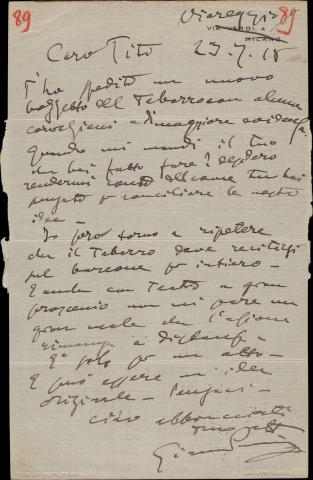 89
Viareggio 89
VIA VERDI, 4
MILANO
Caro Tito 23.7.18
T'ho spedito un nuovo
bozzetto del Tabarro con alcune
di maggiore evidenza
quando mi mandi il tuo
che hai fatto fare? desidero
rendermi conto del come tu hai
pensato per conciliare le nostre
idee —
Io però torno a ripetere
che il Tabarro deve recitarsi
sul barcone per intiero —
E anche con Teatro a gran
proscenio non mi pare un
gran male che l'azione
rimanga a distanza —
E' solo per un atto —
E può essere un'idea
originale — Pensaci —
ciao abbracciati
tuo aff
Giacomo